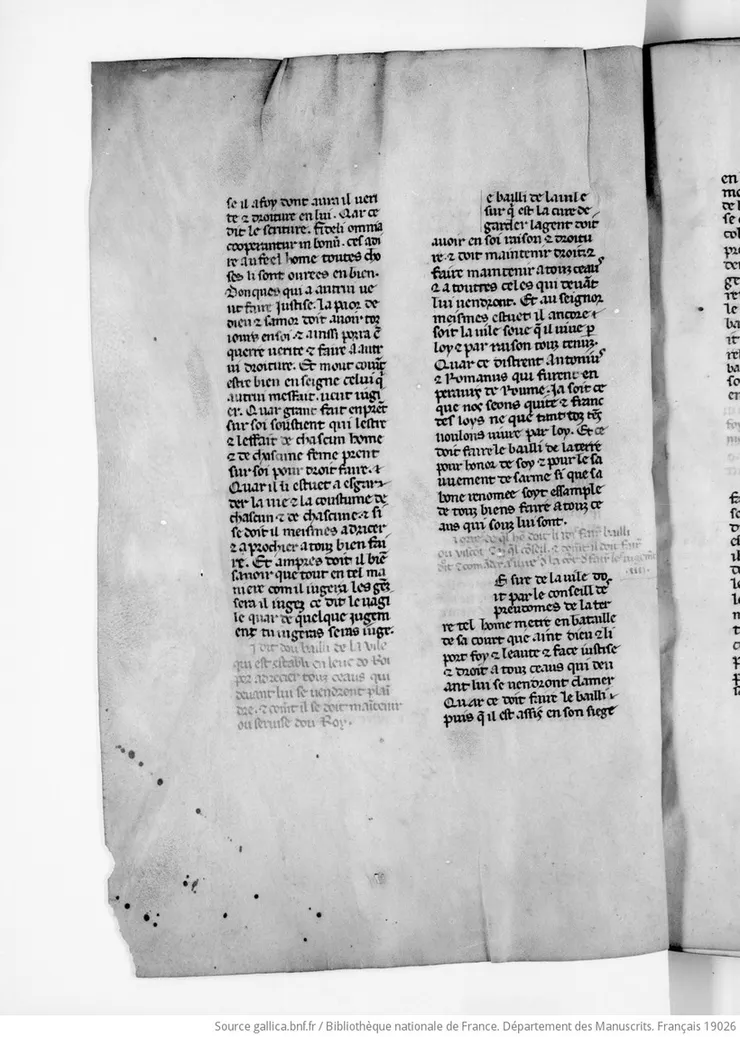 se il a foy dont aura il ueri
te ⁊ droiture en lui. Quar ce
dit le scriture. fideli omnia
cooperantur in bonū. ces adi
re au feel home toutes cho
ses li sont ourees en bien.
Donques qui a autrui ue
ut faire Justise. la paor de
dieu ⁊ samor doit auoir toz
iours en soi ⁊ ainsi porra
querre uerite ⁊ faire a autr
ui droiture. Et mout
estre bien enseigne celui q̄
autrui mesfait. ueut iugi
er. Quar grant fait enprēt
sur soi soustient qui lestre
⁊ leffait de chascun home
⁊ de chascune feme prent
sur soi pour droit faire. ⁊
Quar il li estuet a esgar
der la uie ⁊ la coustume de
chascun ⁊ de chascune ⁊ si
se doit il meismes adrecer
⁊ aprochier a touz bien fai
re. Et ampres doit il biē
sauoir que tout en tel ma
niere com il iugera les genz
sera il iugez ce dit leuagi
le quar de quelque iugem
ent tu iugeras seras iuge.
Ci dit dou bailli de la uile
qui est establi en leuc do Roi
por adrecier touz ceaus qui
deuant lui se uendront plai
dre. ⁊ comt il se doit maitenir
ou seruise dou Roy.
e bailli de la uile
sur q̄ est la cure de
garder lagent doit
auoir en soi raison ⁊ droitu
re ⁊ doit maintenir droit ⁊
faire maintenir a touz ceaus
⁊ a toutres celes qui deuāt
lui uendront. Et au seignor
meismes estuet il ancore
soit la uile soue q̄ il uiue p
loy ⁊ par raison touz tenuz.
Quar ce distrent Antonius
⁊ Romanus qui furent en
peraurs de Roume. Ja soit ce
que nos seons quite ⁊ franc
des loys ne que
uoulons uiure par loy. Et ce
doit faire le bailli de la terre
pour honor de soy ⁊ pour le sa
uuement de sarme si que sa
bone renomee soyt essample
de touz biens faire a touz ce
aus qui souz lui sont.
bailli
E sire de la uile do
it par le conseill de
preudomes de la ter
re tel home metre en bataille
de sa court que aint dieu ⁊ li
port foy ⁊ leaute ⁊ face iustise
⁊ droit a touz ceaus qui deu
ant lui se uendront clamer
Quar ce doit faire le bailli
puis q̄ il est assis en son siege